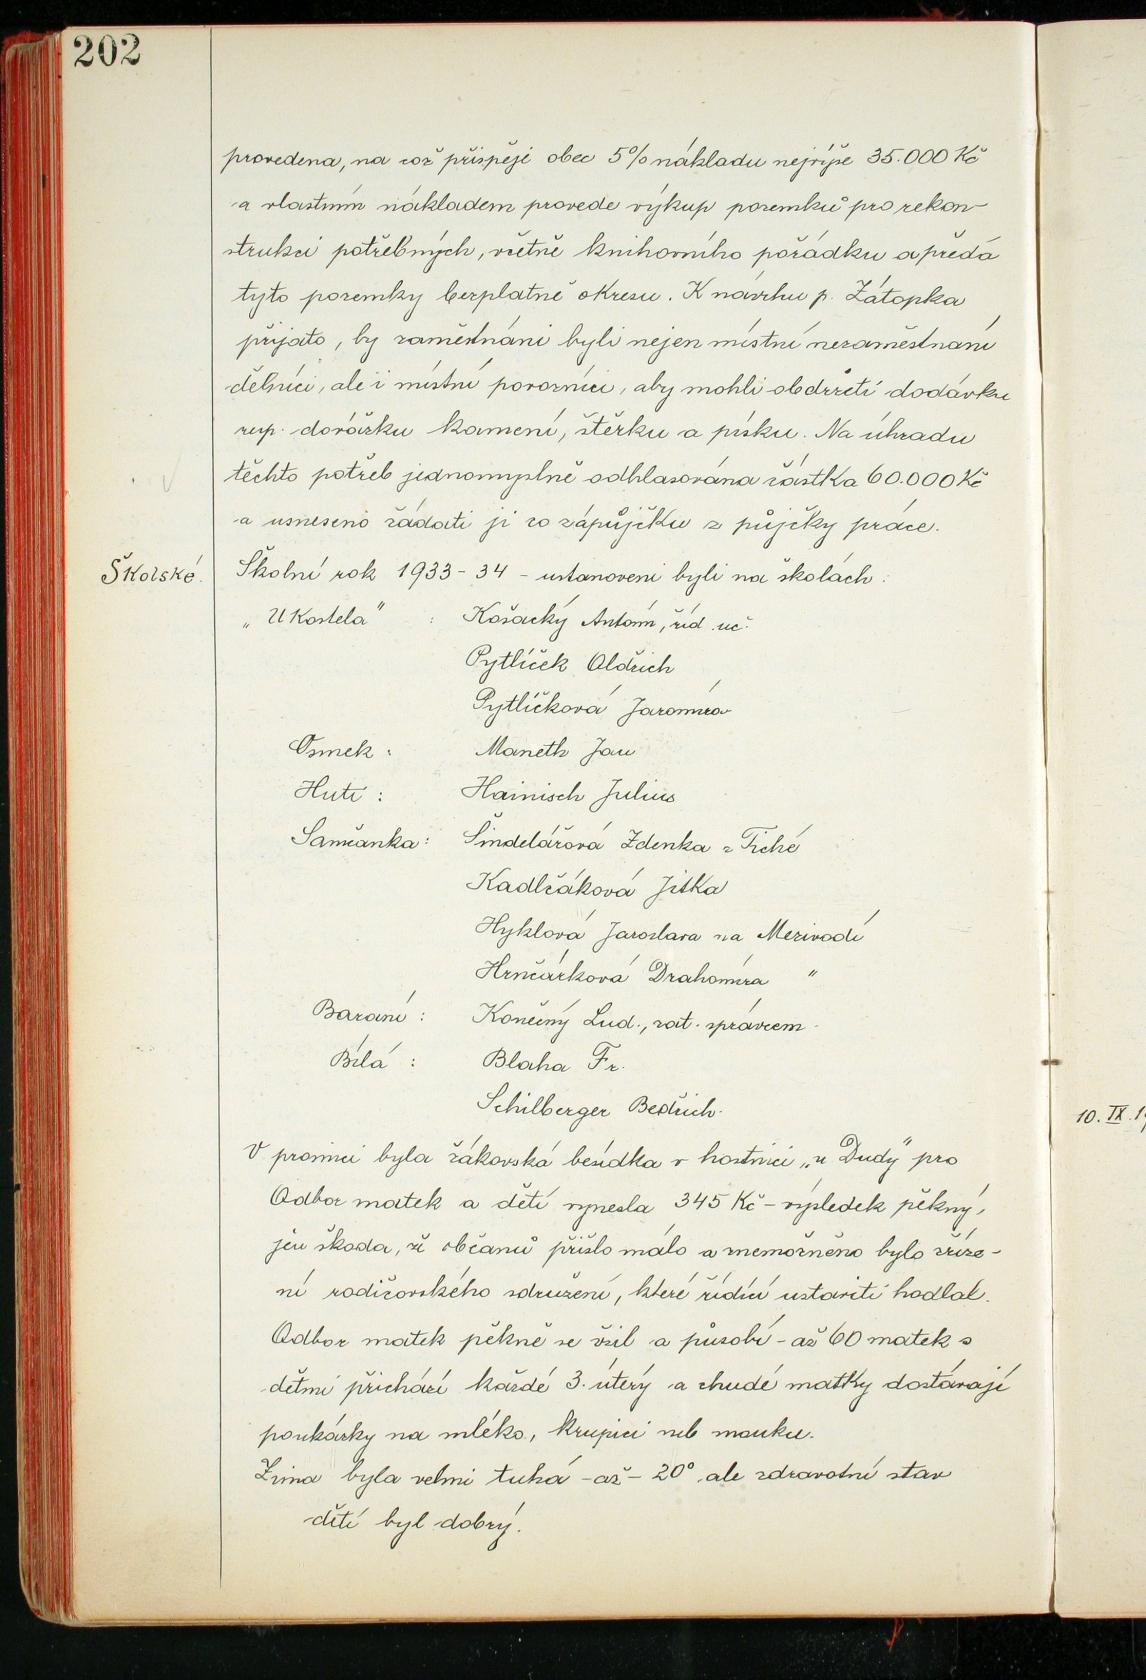 202
provedena, na což přispěje obec 5% nákladu nejvýše 35.000 Kč
a vlastním nákladem provede výkup pozemků pro rekon-
strukci potřebných, včetně knihovního pořádku a předá
tyto pozemky bezplatně okresu. K návrhu p. Zátopka
přijato, by zaměstnáni byli nejen místní nezaměstnaní
dělníci, ale i místní povozníci, aby mohli obdržeti dodávku
resp. dovážku kamení, štěrku a písku. Na úhradu
těchto potřeb jednomyslně odhlasována částka 60.000 Kč
a usneseno žádati ji co zápůjčku z půjčky práce.
Školské.
Školní rok 1933-34 - ustanoveni byli na školách:
„U Kostela" : Košacký Antonín, říd. uč.
Pytlíček Oldřich
Pytlíčková Jaromíra
Ösmek : Maneth Jan
Hutě : Hainisch Julius
Samčanka : Šindelářová Zdenka z Tiché
Kadlčáková Jitka
Hyklová Jaroslava na Mezivodí
Hrnčárková Drahomíra "
Baraní : Konečný Lud., zat. správcem.
Bílá : Blaha Fr.
Schilberger Bedřich.
V prosinci byla žákovská besídka v hostinci „u Dudy" pro
Odbor matek a dětí vynesla 345 Kč - výsledek pěkný,
jen škoda, že občanů přišlo málo a znemožněno bylo zříze-
ní rodičovského sdružení, které řídící ustaviti hodlal.
Odbor matek pěkně se vžil a působí - až 60 matek s
dětmi přichází každé 3. úterý a chudé matky dostávají
poukázky na mléko, krupici neb mouku.
Zima byla velmi tuhá - až - 20°, ale zdravotní stav
dětí byl dobrý.
10. IX. 19